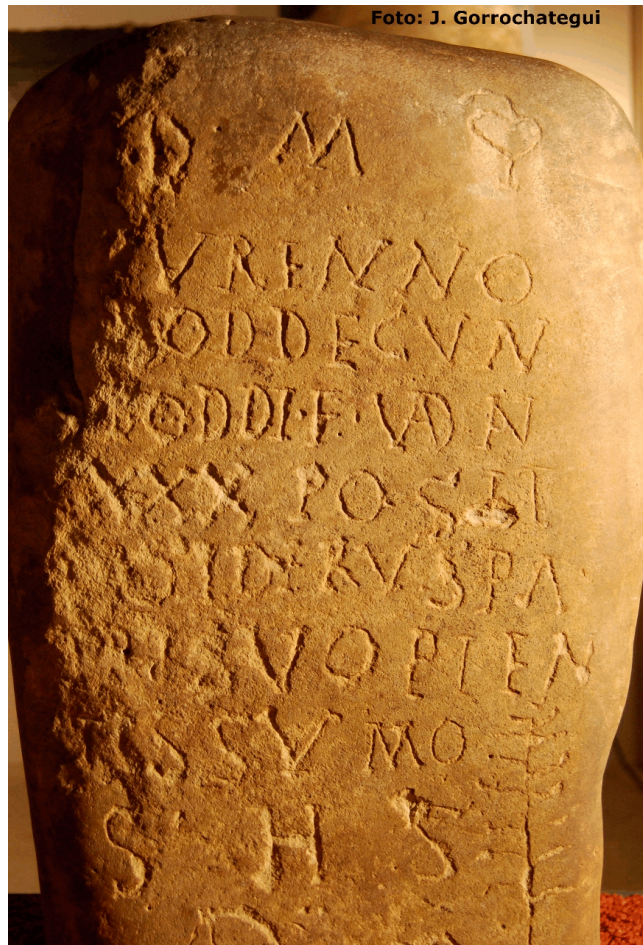 Foto: J. Gorrochategui
D M
VRENNO
ODDEGVN
BODDI·F·VADN
XX POSIT
VSPA
TRI SVO PIEN
TISSVMO
S H S